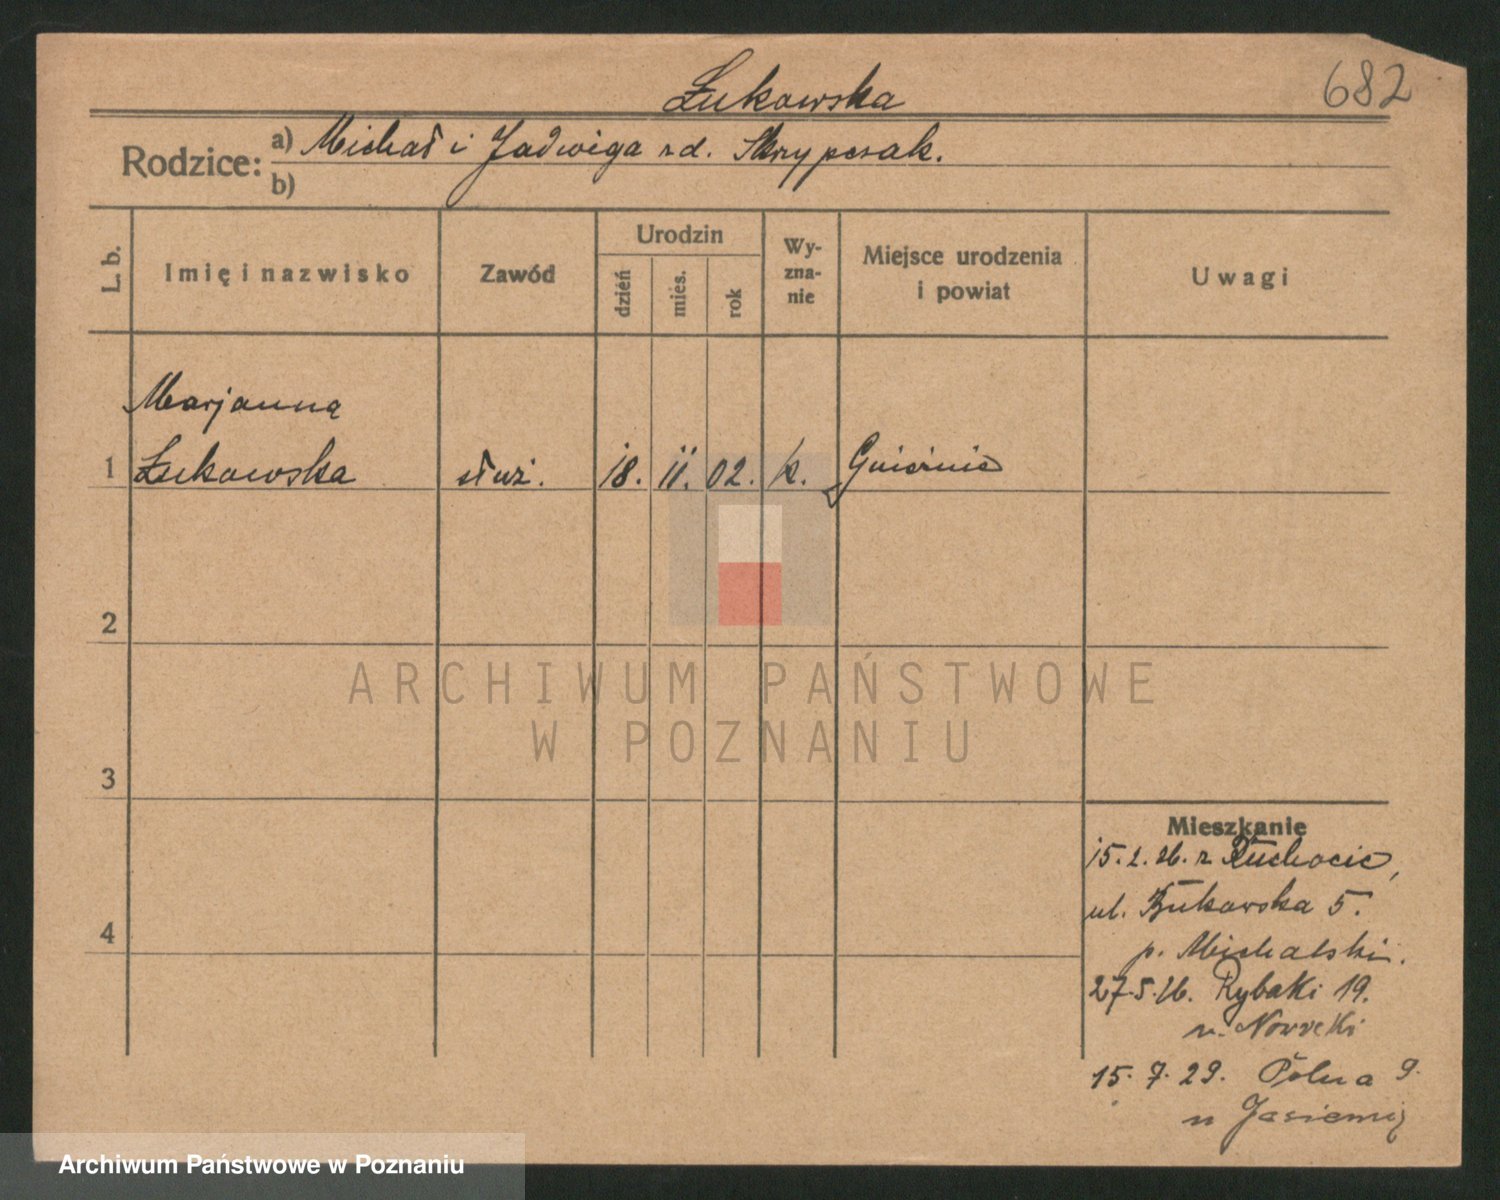 682
Łukowska
Rodzice: a) Michał i Jadwiga zd. Skrypczak.
b)
L. b.
Imię i nazwisko
Zawód
Urodzin
dzień
mies.
rok
Wy-
zna-
nie
Miejsce urodzenia
i powiat
Uwagi
Marjanna
1 Łukowska służ. 18. 11. 02. k.
2
3
4
ARCHIWUM PAŃSTWOWE
W POZNANIU
Mieszkanie
15. 2. 26. z Ruchocic,
ul. Bukowska 5.
p. Michalski.
27.5.26. Rybaki 19.
15. 7. 29. Polna 9.
Archiwum Państwowe w Poznaniu